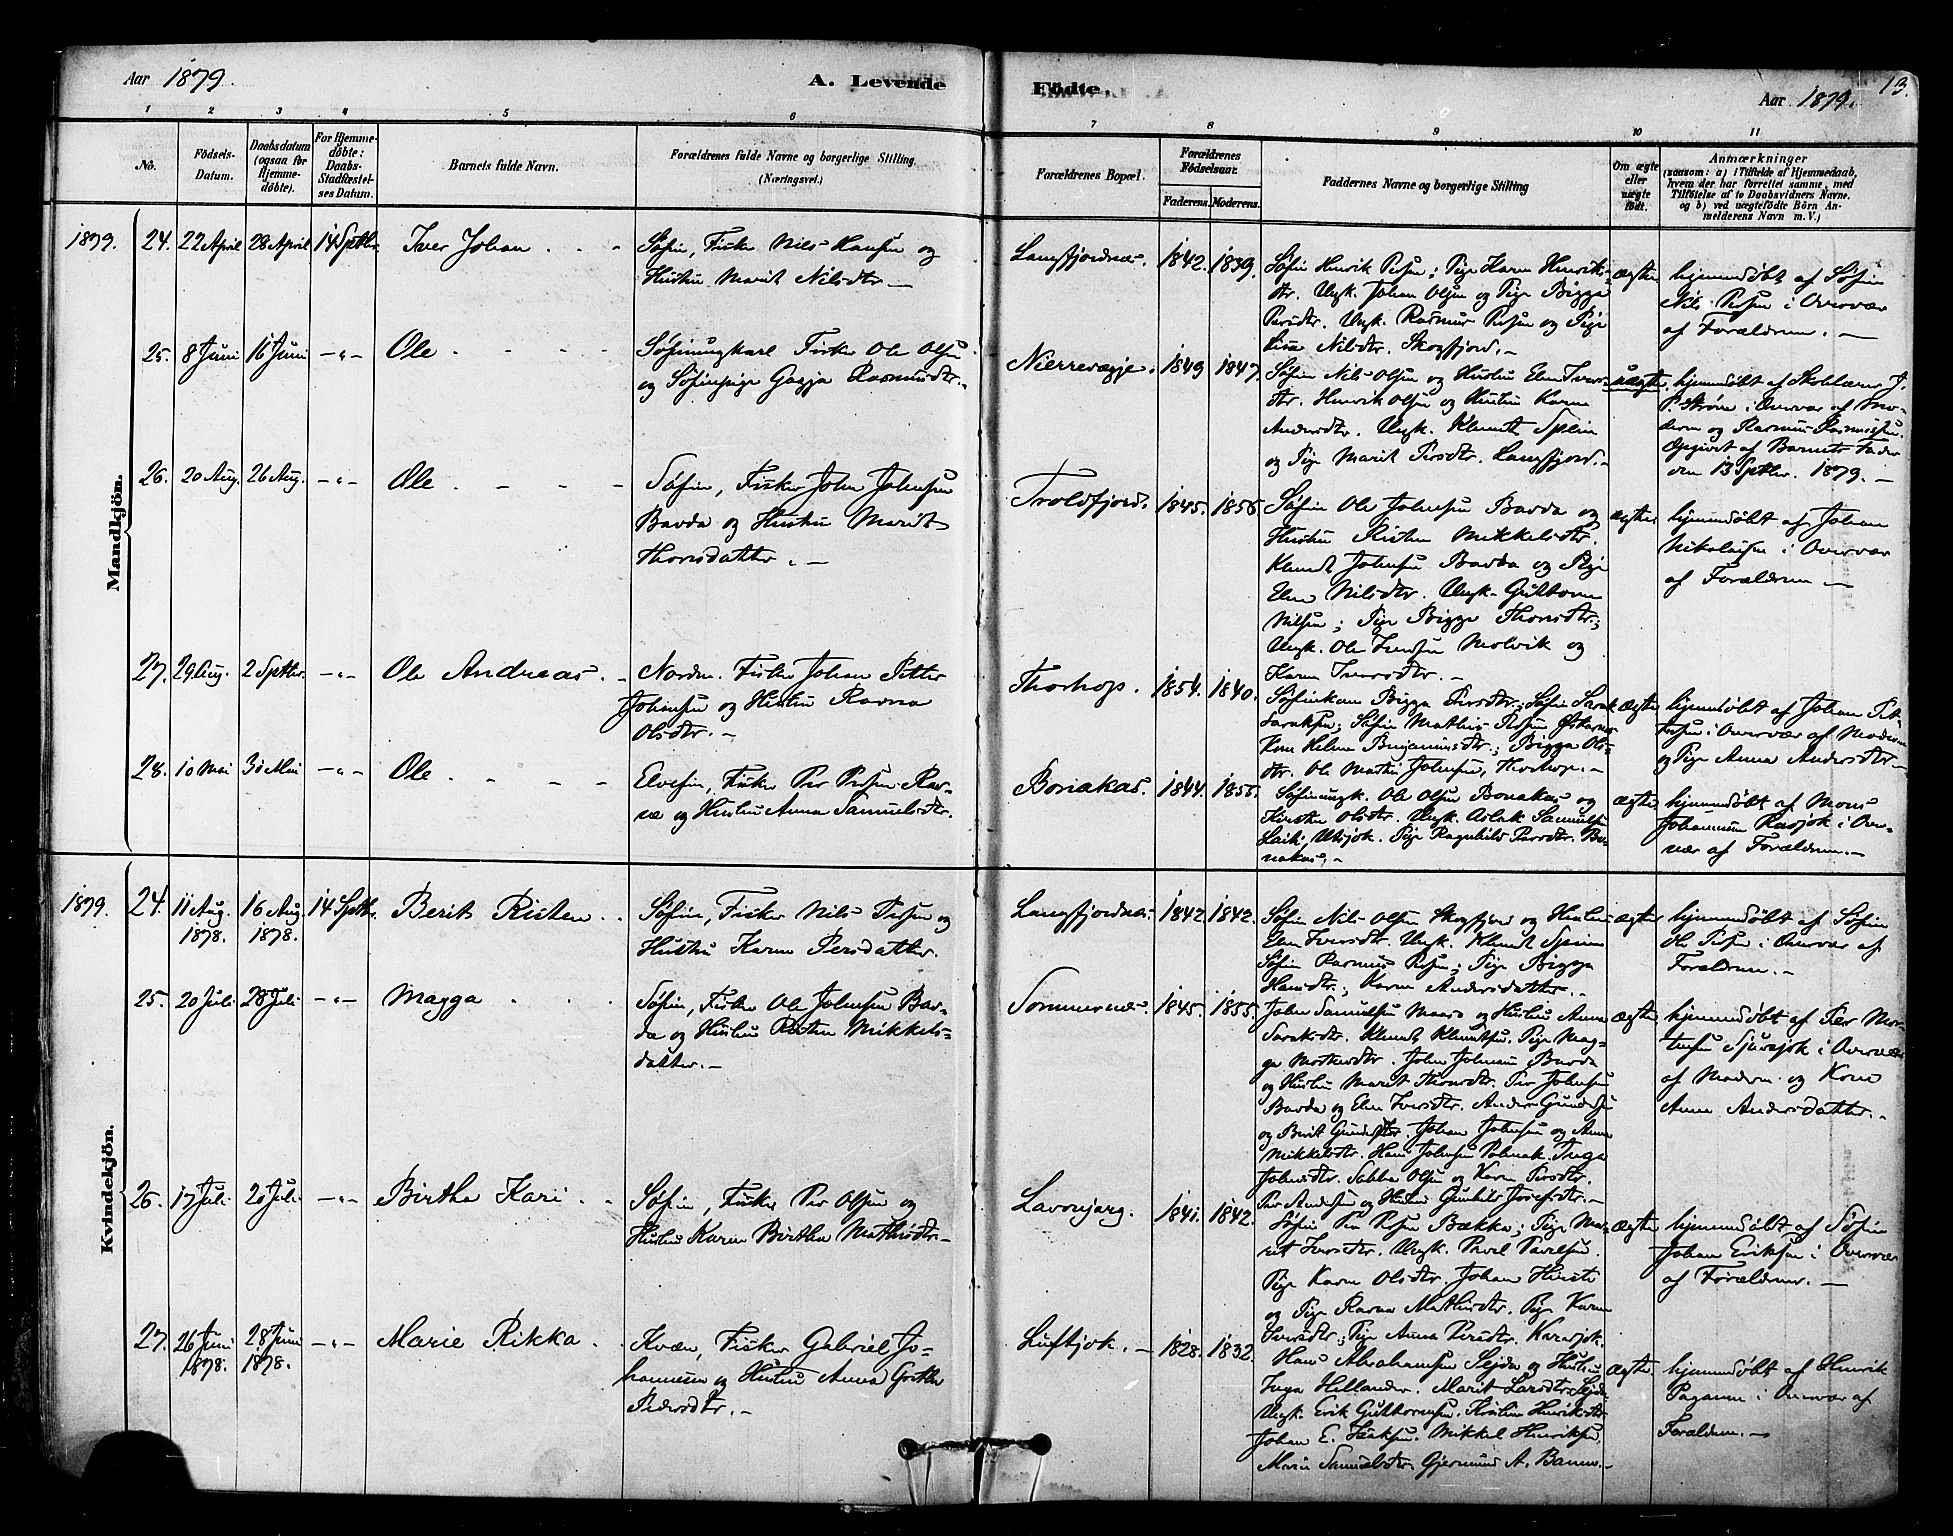 Aar 1879
A. Levende
Födte.
Aar 1879.
13.
1 2 3 4 5 6 7 8 9 10 11
No.
Födsels-
Datum.
Daabsdatum
(ogsaa for
Hjemme-
döbte).
For Hjemme-
döbte:
Daabs-
Stadfæstel-
ses Datum.
Barnets fulde Navn.
Forældrenes fulde Navne og borgerlige Stilling.
(Næringsvei.)
Forældrenes Bopæl.
Forældrenes
Födselsaar.
Faderens. Moderens.
Faddernes Navne og borgerlige Stilling
Om ægte
eller
uægte
födt.
Anmærkninger
(saasom: a) i Tilfælde af Hjemmedaab,
hvem der har forrettet samme, med
Tilföielse af to Daabsvidners Navne,
og b) ved uægtefödte Börn An-
melderens Navn m. V.)
Mandkjön.
1879. 24. 22 April 28 April 14 Septbr. Iver Johan
Søfin, Fisker Nils Hansen og
Hustru Marit Nilsdtr.
Langfjordnæs. 1842. 1839.
Søfin Henrik Persen; Pige Karen Henriks-
dtr. Ungk. Johan Olsen og Pige Bigga
Persdtr. Ungk. Rasmus Persen og Pige
Nilsdtr. Skogfjord.
ægte
hjemmedøbt af Søfin
Nils Persen i Overvær
af Forældrene.
25. 8 Juni 16 Juni -"- Ole
Søfinungkarl Fisker Ole Olsen
og Søfinpige Gagja Rasmusdtr.
Nierrevagje. 1849 1847.
Søfin Nils Olsen og Hustru Elen Ivers-
dtr. Henrik Olsen og Hustru Karen
Andersdtr. Ungk. Klemet Spein
og Pige Marit Persdtr. Langfjord.
uægte
hjemmedøbt af Skolelærer J.
P. Strøm i Overvær af Mo-
deren og Rasmus Rasmussen.
Opgivet af Barnets Fader
den 13 Septbr. 1879.
26. 20 Aug. 26 Aug. -"- Ole
Søfin, Fisker John Johnsen
Bavda og Hustru Marit
Thomsdatter.
Troldfjord. 1845. 1856
Søfin Ole Johnsen Bavda og
Hustru Risten Mikkelsdtr.
Klemet Johnsen Bavda og Pige
Elen Nilsdtr. Ungk. Guttorm
Nilsen; Pige Bigga Thomsdtr;
Ungk. Ole Iversen Molvik og
Karen Iversdtr.
ægte
hjemmedøbt af Johan
Nikolaisen i Overvær
af Forældrene
27. 29 Aug. 2 Septbr. -"- Ole Andreas
Nordm. Fisker Johan Petter
Johnsen og Hustru Ravna
Olsdtr.
Thorhop. 1854. 1840.
Søfinkone Bigga Persdtr; Søfin Sarak
Saraksen; Søfin Mathis Persen
Kone Helene Benjaminsdtr.; Bigga Ols-
dtr. Ole Mathis Johnsen, Thorhop.
ægte
hjemmedøbt af Johan Pet-
tersen i Overvær af Moderen
og Pige Anna Andersdtr.
28. 10 Mai 30 Mai -"- Ole
Elvefin, Fisker Per Persen Rav-
næ og Hustru Anna Samuelsdtr.
Bonakas. 1844. 1855.
Søfinungk. Ole Olsen Bonakas og
Kirsten Olsdtr. Ungk. Aslak Samuelsen
Laiti, Utsjok. Pige Ragnhild Persdtr. Bo-
nakas.
ægte
hjemmedøbt af Mons
Johannesen Rasjok i Over-
vær af Forældrene.
Kvindekjön.
1879. 24. 11 Aug. 1878. 16 Aug. 1878. 14 Septbr. Berit Risten
Søfin, Fisker Nils Persen og
Hustru Karen Persdatter.
Langfjordnæs. 1842 1842.
Søfin Nils Olsen Skogfjord og Hustru
Elen Iversdtr. Ungk. Klemet Spein
Søfin Rasmus Persen; Pige Bigga
Hansdtr.; Karen Andersdatter.
ægte
hjemmedøbt af Søfin
Ole Persen i Overvær af
Forældrene.
25. 20 Juli 28 Juli -"- Magga
Søfin, Fisker Ole Johnsen Bav-
da og Hustru Risten Mikkels-
datter.
Sommernæs. 1845. 1855.
John Samuelsen Maars og Hustru Anna
Saraksdtr. Klemet Klemetsen. Pige Mag-
ga Mortensdtr. John Johnsen Bavda
og Hustru Marit Thomsdtr. Per Johnsen
Bavda og Elen Iversdtr. Anders Gundersen
og Berit Gundersdtr. Johan Johnsen og Anna
Mikkelsdtr. Hans Johnsen Polmak. Inga
Johnsdtr. Sabba Olsen og Karen Persdtr.
Per Andersen og Hustru Gunhild Josefsdtr.
ægte
hjemmedøbt af Per Mor-
tensen Sjursjok i Overvær
af Moderen og Kone
Anna Andersdatter.
26. 17 Juli 20 Juli -"- Birtha Kari
Søfin, Fisker Per Olsen og
Hustru Karen Birtha Mathisdtr.
Lavonjarg. 1841. 1842.
Søfin Per Persen Bække; Pige Mar-
rit Iversdtr. Ungk. Povel Povelsen.
Pige Karen Olsdtr. Johan
og Pige Ravna Mathisdtr. Pige Karen
Iversdtr; Pige Anna Persdtr.
ægte
hjemmedøbt af Søfin
Johan Eriksen i Overvær
af Forældrene.
27. 26 Juni 1878. 28 Juni 1878. -"- Marie Rikka
Kvæn, Fisker Gabriel Jo-
hannesen og Hustru Anna Grethe
Pedersdtr.
Luftjok. 1828. 1832.
Hans Abrahamsen Sejda og Hustru
Inga Hellander. Marit Larsdtr. Sejda
Ungk. Erik Guttormsen. Kristine Henriksdtr.
Johan E. Isaksen. Mikkel Henriksen.
Marie Samuelsdtr. Gjermund A. Banne.
ægte
hjemmedøbt af Henrik
Paganen i Overvær af
Forældrene.